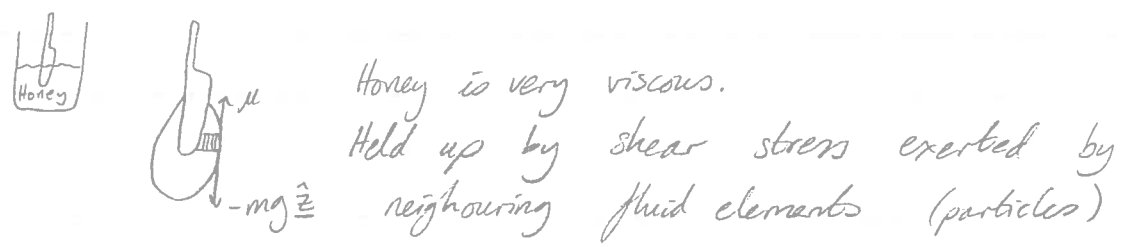 Honey
μ
-mg ẑ
Honey is very viscous.
Held up by shear stress exerted by
neighouring fluid elements (particles)